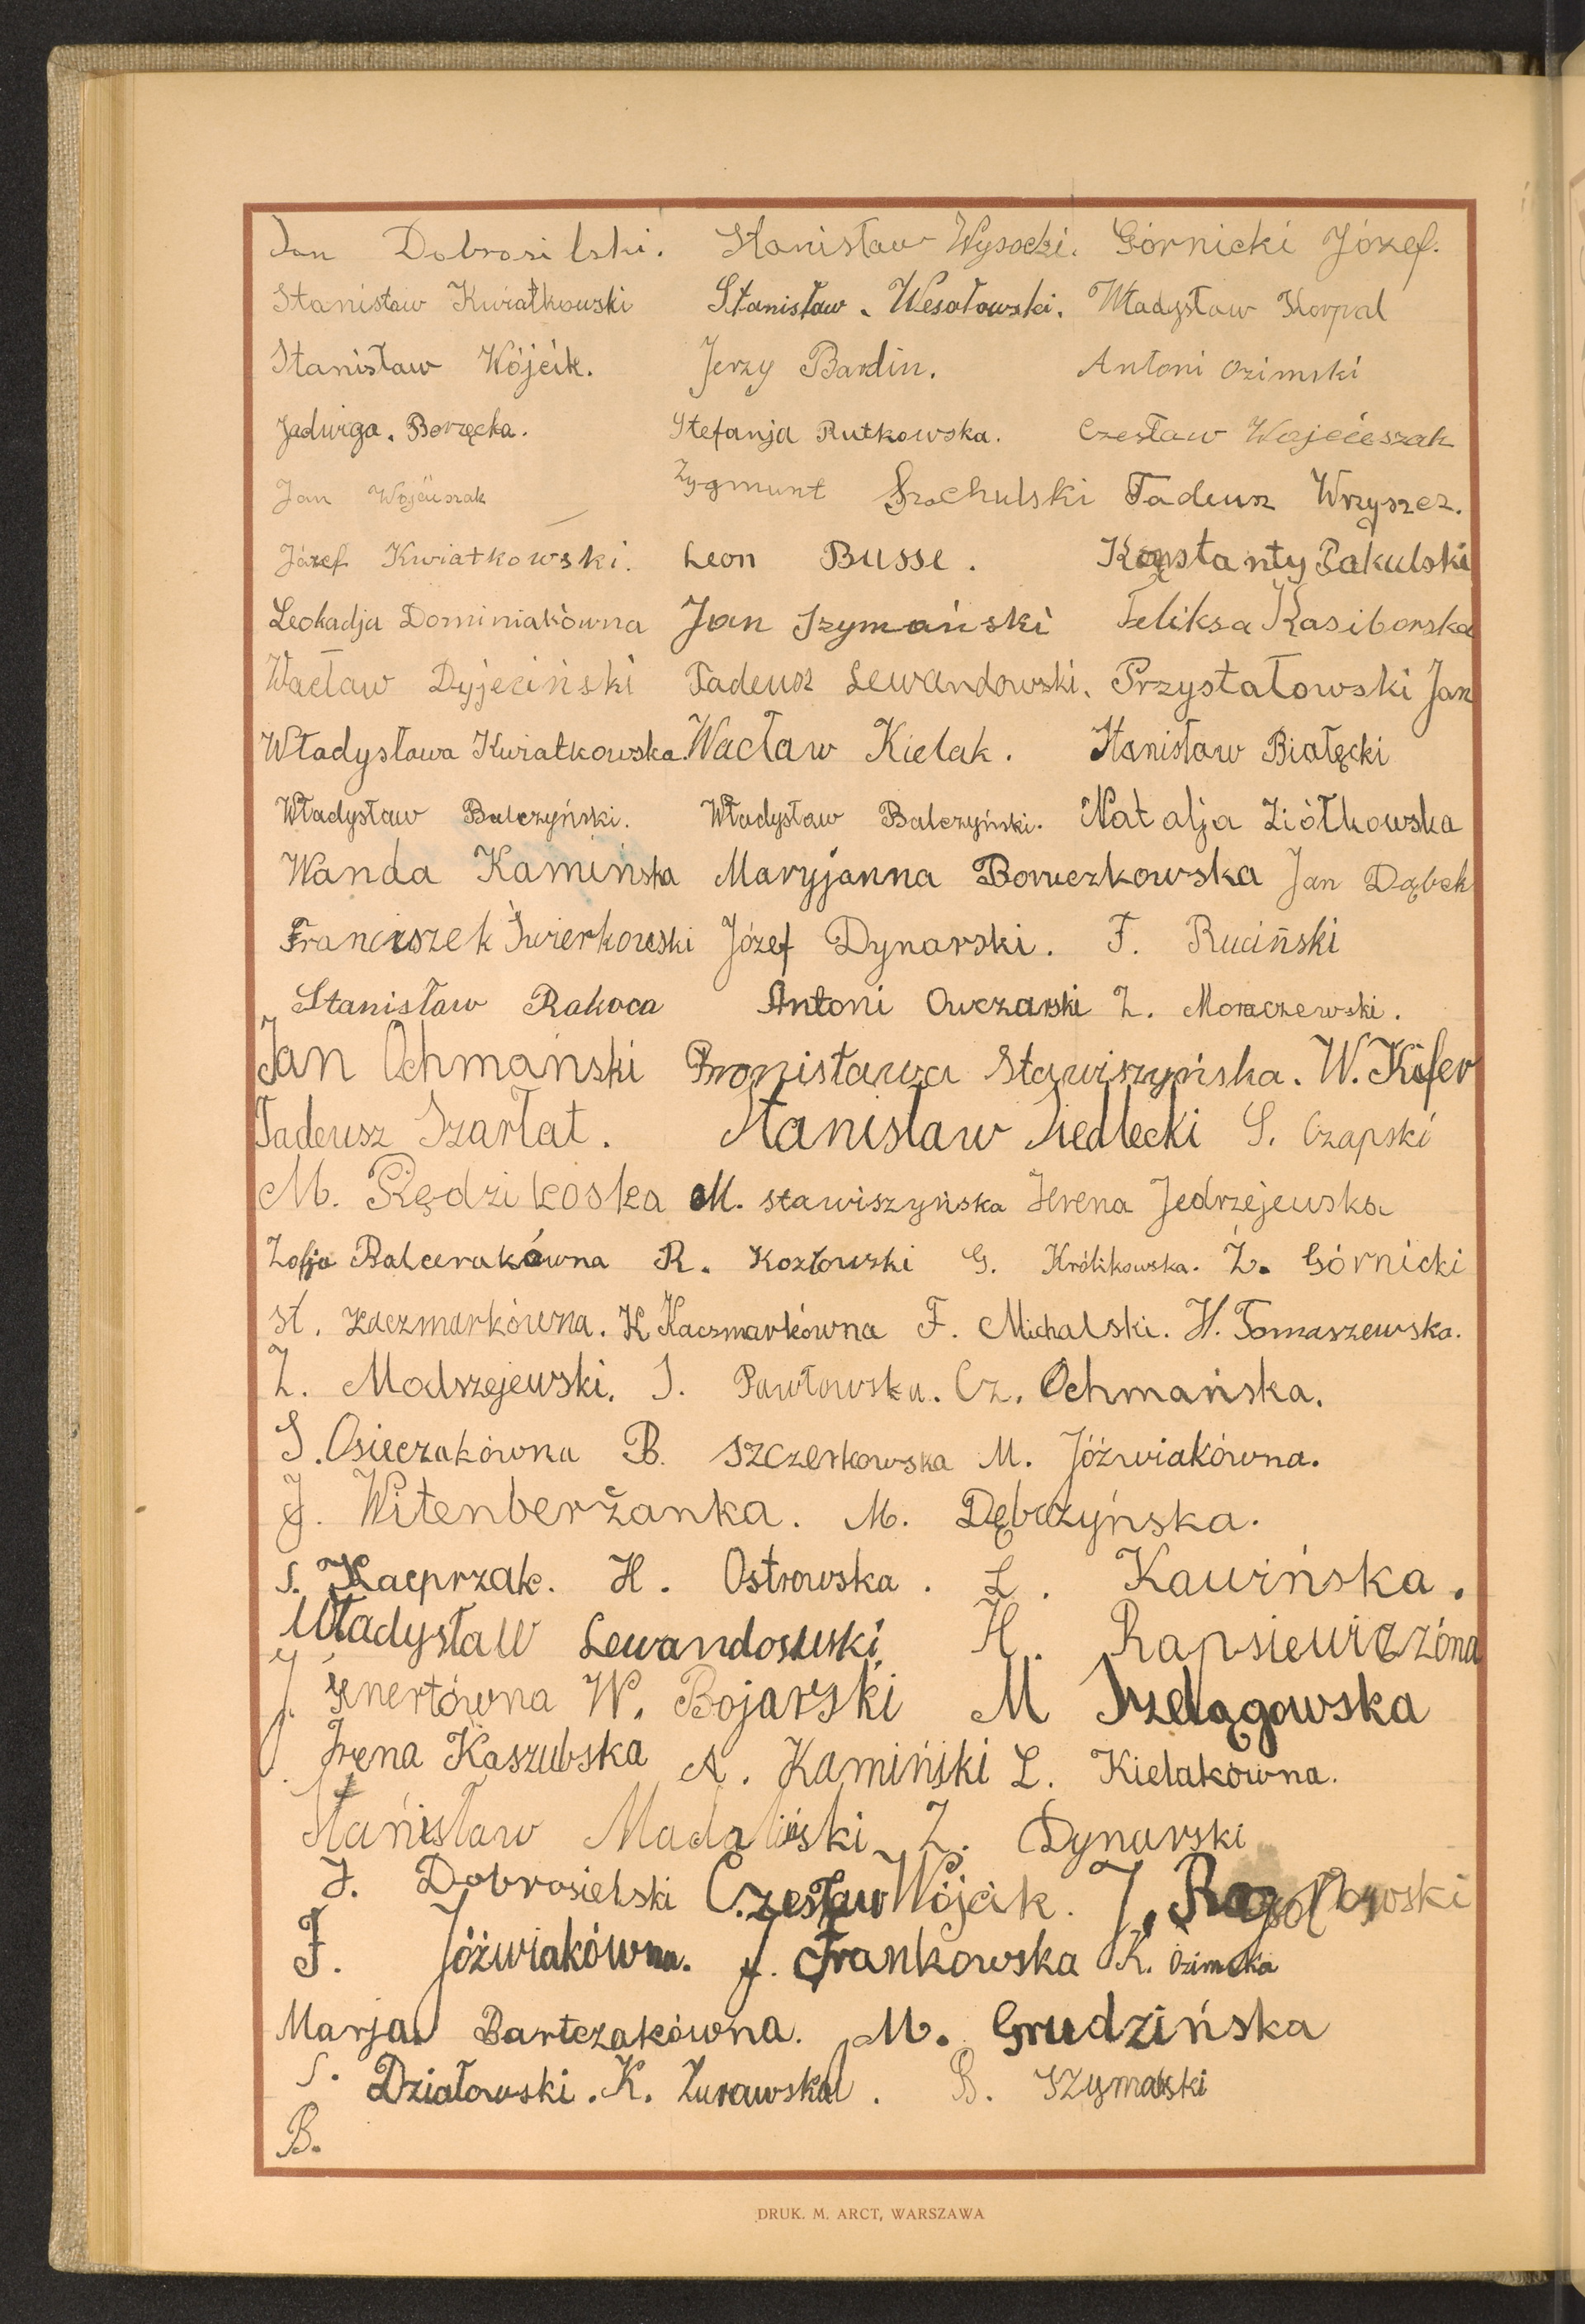 Jan Dobrosilski. Stanisław Wysocki. Górnicki Józef.
Stanisław Kwiatkowski Stanisław. Wesołowski. Władysław Korpal
Stanisław Wójcik. Jerzy Bardin. Antoni Ozimski
Jadwiga. Borzęcka. Stefanja Rutkowska. Czesław Wojcieszak
Jan Wojcieszak Zygmunt Suchulski Tadeusz Wrzyszcz.
Józef Kwiatkowski. Leon Busse. Konstanty Pakulski
Leokadja Dominiakówna Jan Szymański Feliksa Kasiborska
Wacław Dyjeciński Tadeusz Lewandowski. Przystałowski Jan
Władysława Kwiatkowska. Wacław Kielak. Stanisław Białęcki
Władysław Balczyński. Władysław Balczyński. Natalja Ziółkowska
Wanda Kamińska Maryjanna Boruczkowska Jan Dąbek
Franciszek Świerkowski Józef Dynarski. F. Ruciński
Stanisław Rakoca Antoni Owczarski Z. Moraczewski.
Jan Ochmański Bronisława Stawiszyńska. W. Kifer
Tadeusz Szarłat. Stanisław Siedlecki S. Czapski
M. Rędzikoska M. Stawiszyńska Hrena Jedrzejewska
Zofja Balcerakówna R. Kozłowski G. Królikowska. Z. Górnicki
St. Kaczmarkówna. K Kaczmarkówna F. Michalski. H. Tomaszewska.
Z. Modrzejewski. J. Pawłowska. Cz. Ochmańska.
S. Osieczakówna B. Szczerkowska M. Jóźwiakówna.
J. Witenberżanka. M. Dębczyńska.
S. Kacprzak. H. Ostrowska. L. Kawińska.
Władysław Lewandowski. H. Rapsiewiczóna
J. Jenertówna W. Bojarski M Szelągowska
J. Irena Kaszubska A. Kamiński L. Kielakówna.
Stanisław Madaliński Z. Dynarski
J. Dobrosielski Czesław Wójcik. J.
F. Jóźwiakówna. J. Frankowska K. Ozimska
Marja Bartczakówna. M. Grudzińska
S. Działowski. K. Żurawska. B. Szymański
B.
DRUK. M. ARCT, WARSZAWA